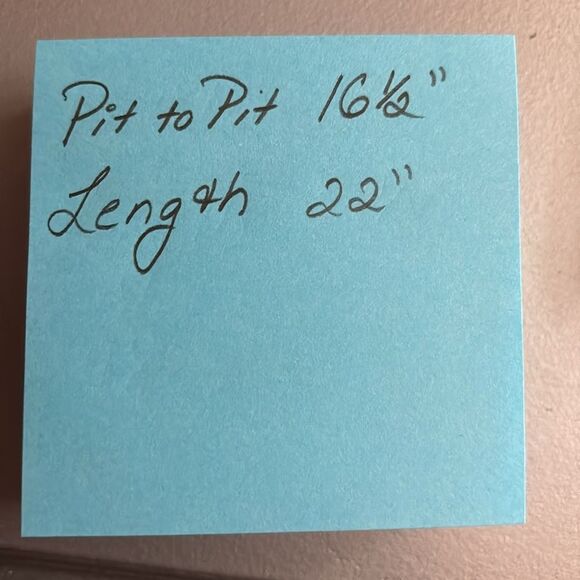 Pit to Pit 16½"
Length 22"